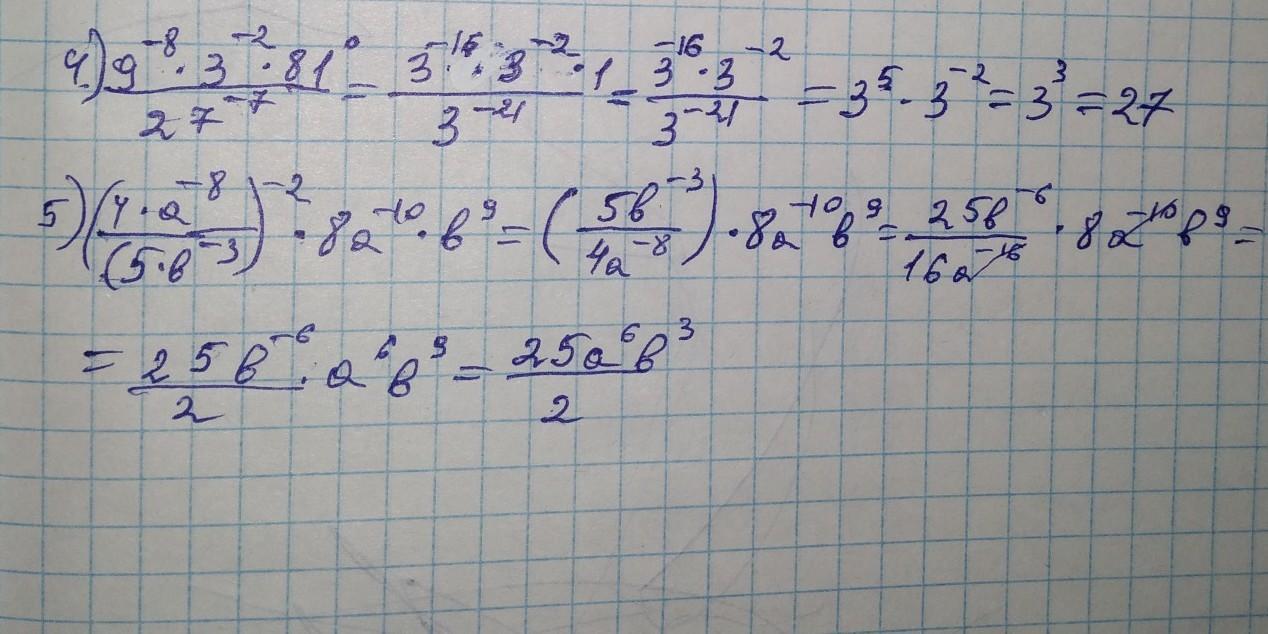 4.) (9⁻⁸ · 3⁻² · 81⁰)/(27⁻⁷) = (3⁻¹⁶ · 3⁻² · 1)/(3⁻²¹) = (3⁻¹⁶ · 3⁻²)/(3⁻²¹) = 3⁵ · 3⁻² = 3³ = 27
5) ((4 · a⁻⁸)/(5 · b⁻³))⁻² · 8a⁻¹⁰ · b⁹ = ((5b⁻³)/(4a⁻⁸)) · 8a⁻¹⁰b⁹ = (25b⁻⁶)/(16a⁻¹⁶) · 8a⁻¹⁰b⁹ =
= (25b⁻⁶)/2 · a⁶b⁹ = (25a⁶b³)/2